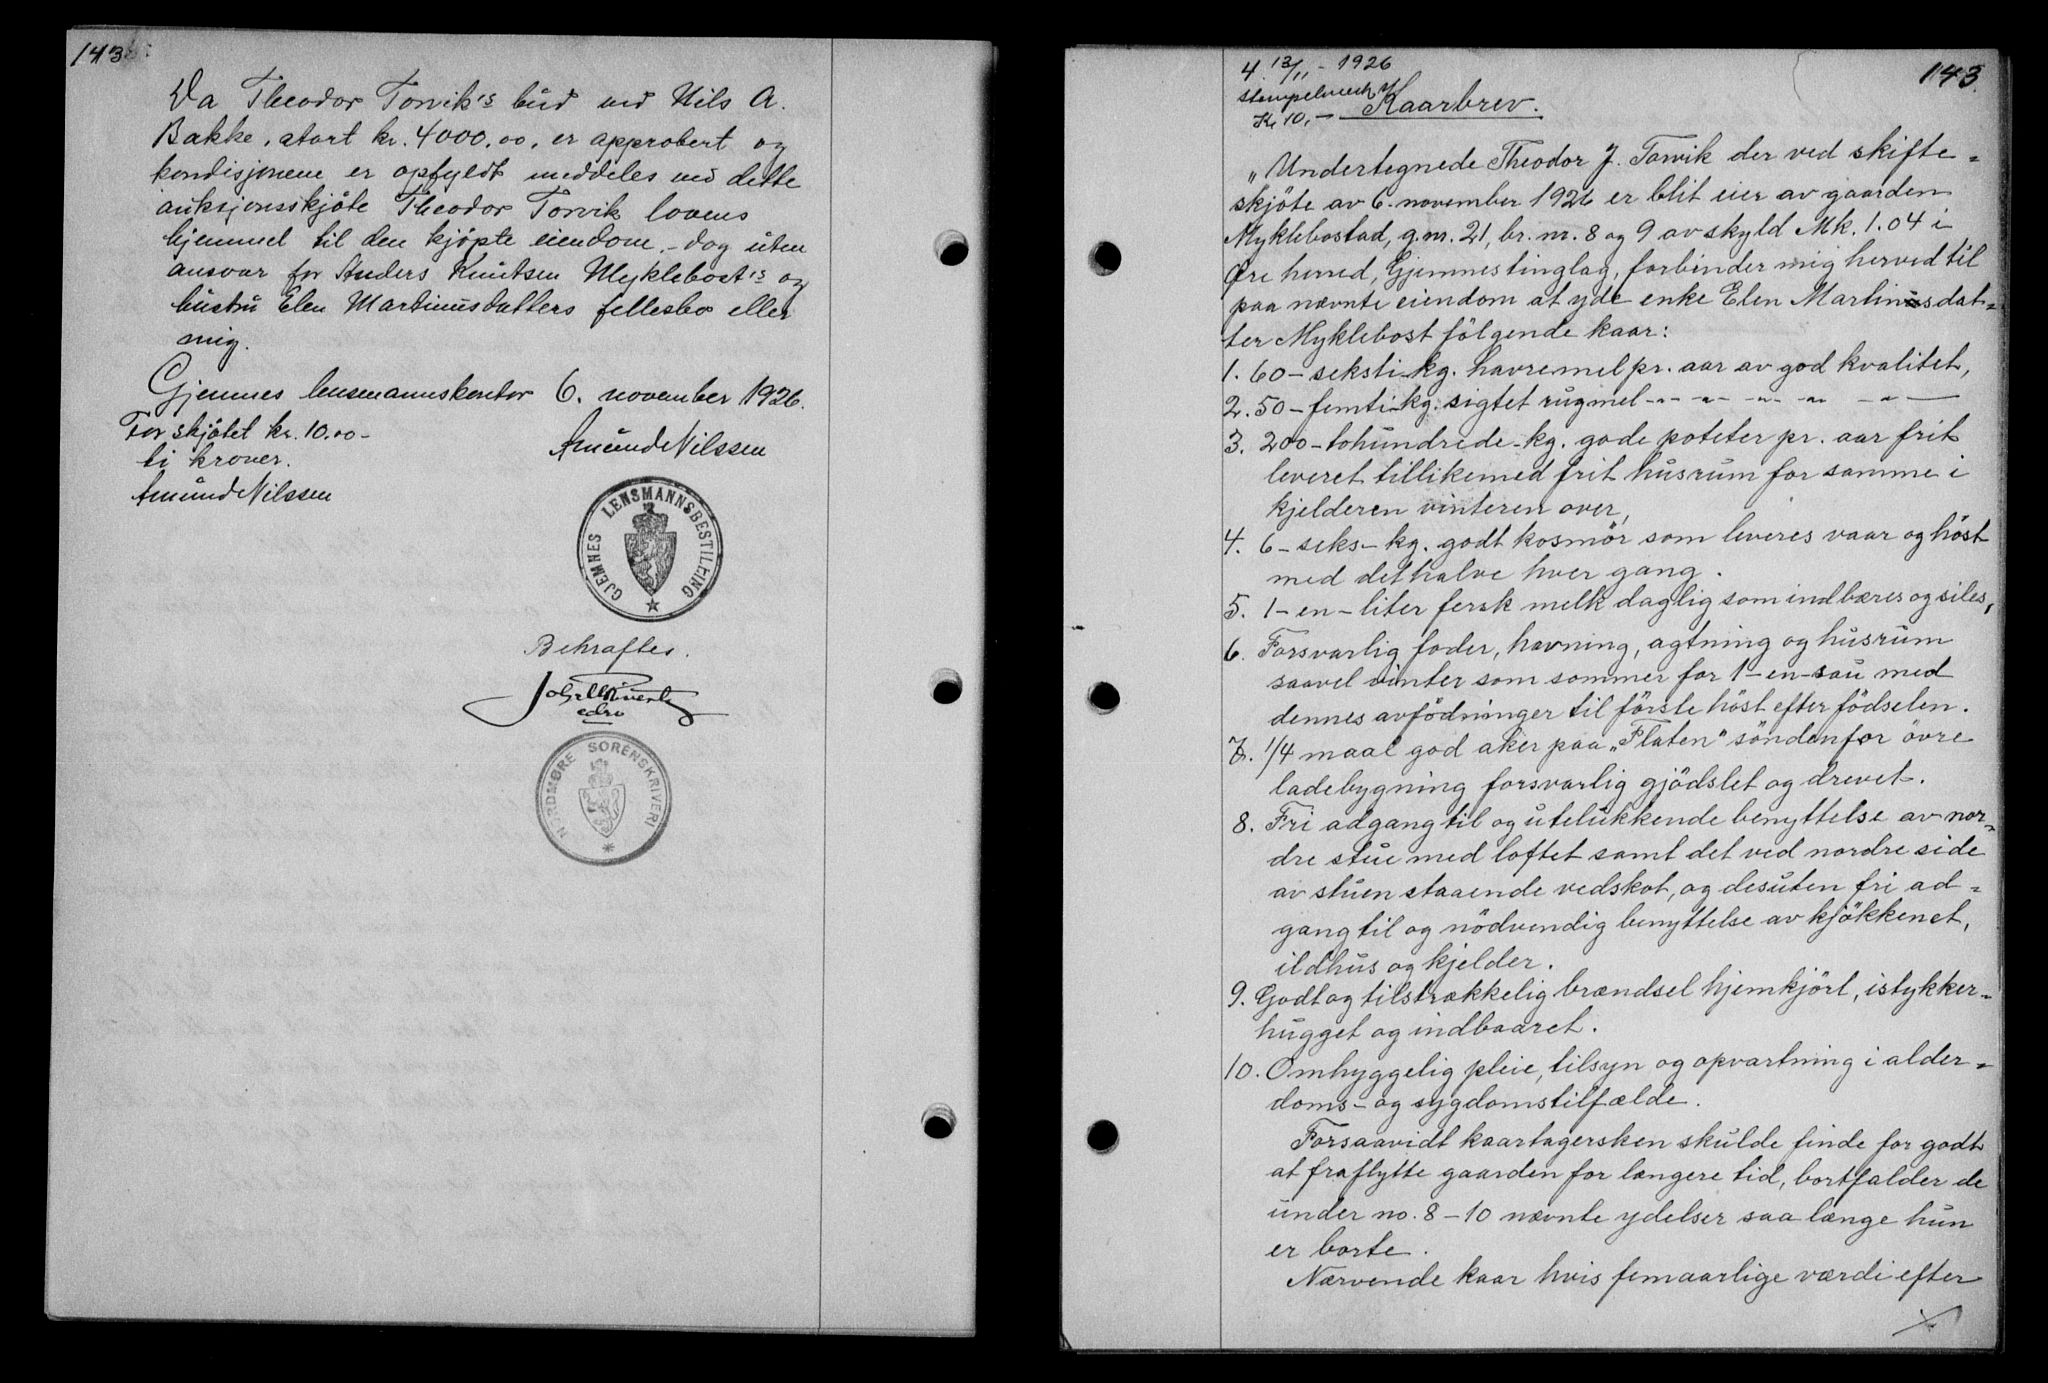 143
Da Theodor Torvik's bud ved Nils A.
Bakke, stort kr. 4000,00, er approbert og
kondisjonene er opfyldt meddeles ved dette
auksjonsskjöte Theodor Torvik lovens
hjemmel til den kjöpte eiendom, - dog uten
ansvar for Anders Knutsen Myklebost's og
hustru Elen Martinusdatters fellesbo eller
mig.
Gjemnes lensmannskontor 6. november 1926.
For skjötet kr. 10.00-
ti kroner.
Amund Nilssen
Amund Nilssen
GJEMNES LENSMANNSBESTILLING
Bekraftes.
edsv
NORDMØRE SORENSKRIVERI
143
4. 13/11 - 1926
Stempelmerk
Kr 10,-
Kaarbrev.
"Undertegnede Theodor J. Torvik der ved skifte=
skjöte av 6. november 1926 er blit eier av gaarden
Myklebostad, g.nr. 21, br. nr. 8 og 9 av skyld Mk. 1.04 i
Øre herred, Gjemnes tinglag, forbinder mig herved til
paa nævnte eiendom at yde enke Elen Martinusdat=
ter Myklebost fölgende kaar:
1. 60 - seksti - kg. havremel pr. aar av god kvalitet,
2. 50 - femti - kg. sigtet rugmel -"- -"- -"- -"- -"-
3. 200 - tohundrede - kg. gode poteter pr. aar frit
leveret tillikemed frit husrum for samme i
kjelderen vinteren over,
4. 6 - seks - kg. godt kosmör som leveres vaar og höst
med det halve hver gang.
5. 1 - en - liter fersk melk daglig som indbæres og siles,
6. Forsvarlig foder, havning, agtning og husrum
saavel vinter som sommer for 1 - en - sau med
dennes avfödninger til förste höst efter födselen.
7. 1/4 maal god aker paa "Flaten" söndenfor övre
ladebygning forsvarlig gjödslet og drevet.
8. Fri adgang til og utelukkende benyttelse av nor=
dre stue med loftet samt det ved nordre side
av stuen staaende vedskot, og desuten fri ad=
gang til og nödvendig benyttelse av kjökkenet,
ildhus og kjelder.
9. Godt og tilstrækkelig brændsel hjemkjört, istykker=
hugget og indbaaret.
10. Omhyggelig pleie, tilsyn og opvartning i alder=
doms- og sygdomstilfælde.
Forsaavidt kaartagersken skulde finde for godt
at fraflytte gaarden for længere tid, bortfalder de
under no. 8 - 10 nævnte ydelser saa længe hun
er borte.
Nærvende kaar hvis femaarlige værdi efter